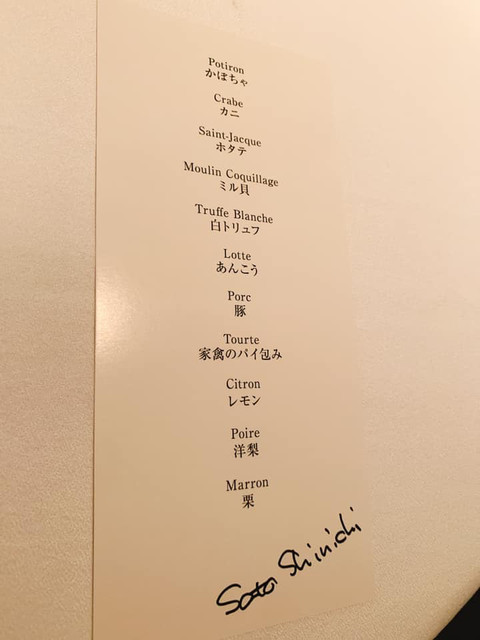 Potiron
かぼちゃ
Crabe
カニ
Saint-Jacque
ホタテ
Moulin Coquillage
ミル貝
Truffe Blanche
白トリュフ
Lotte
あんこう
Porc
豚
Tourte
家禽のパイ包み
Citron
レモン
Poire
洋梨
Marron
栗
Sato Shinichi